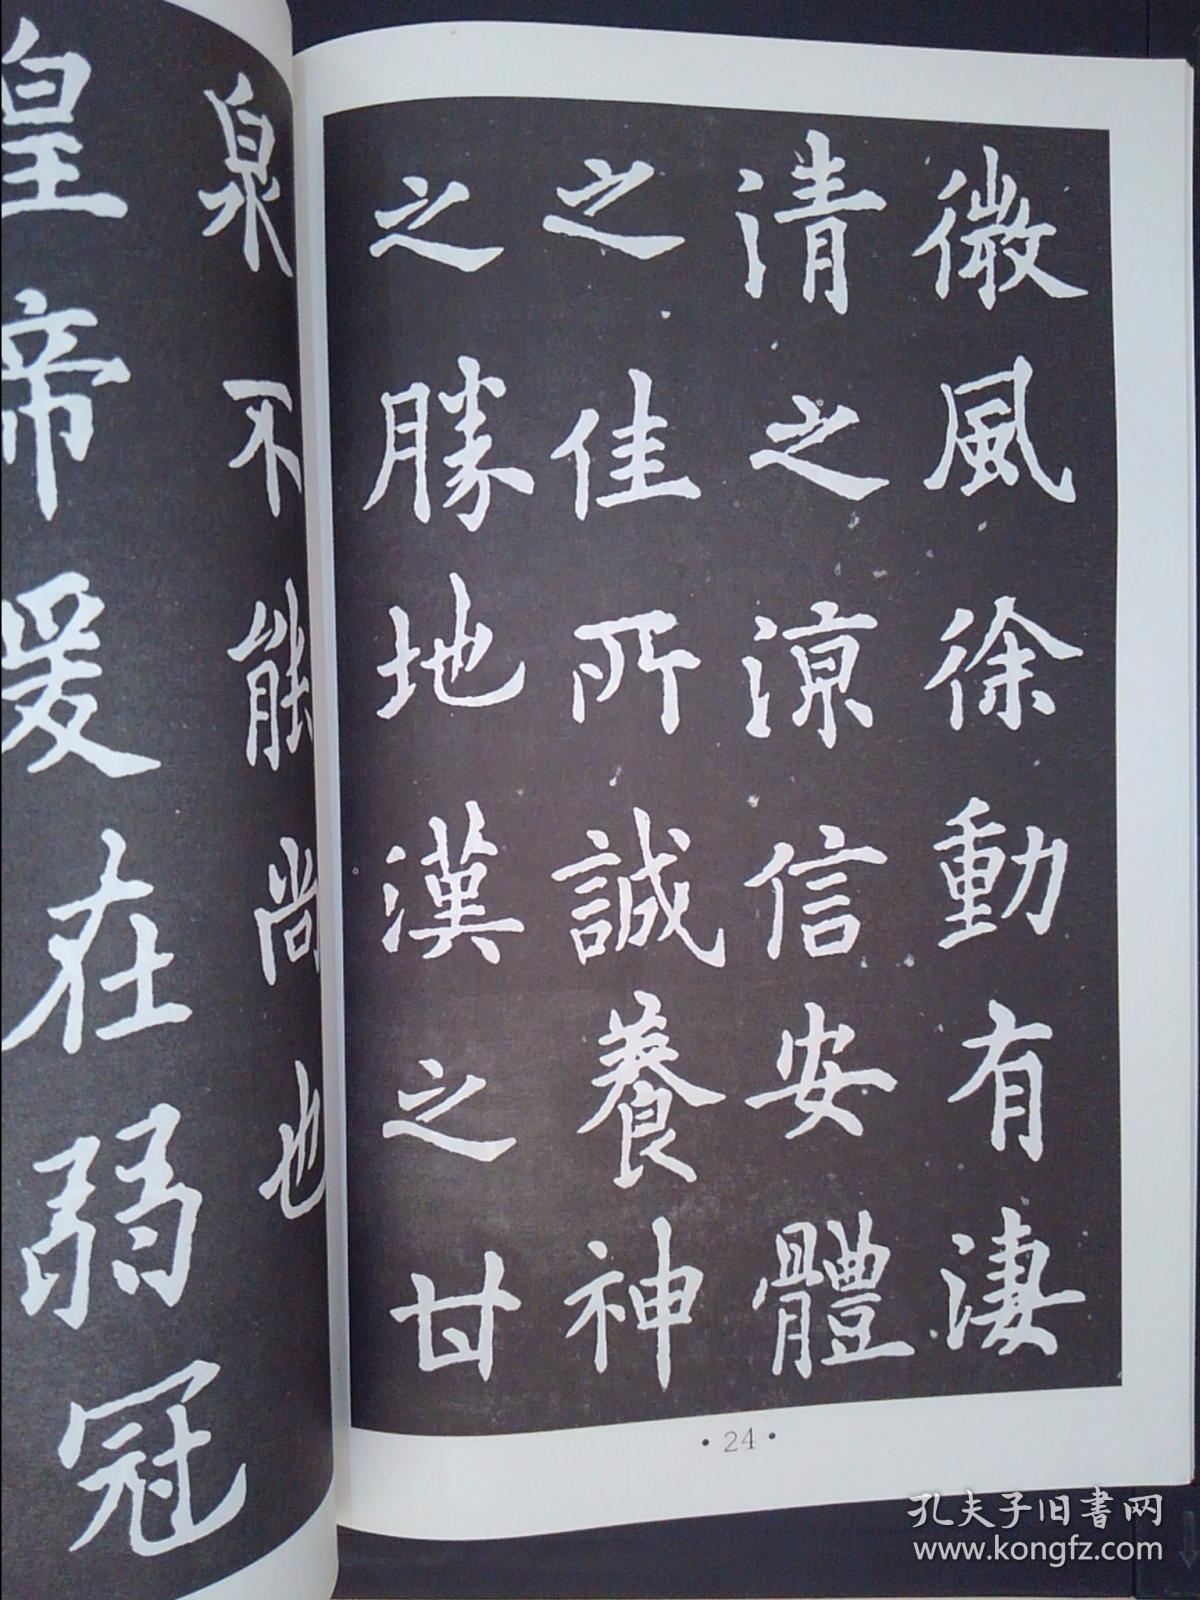 微風徐動有淒
清之涼信安體
之佳所誠養神
之勝地漢之甘
泉不能尚也
皇帝爰在弱冠
· 24 ·
孔夫子旧書网
www.kongfz.com